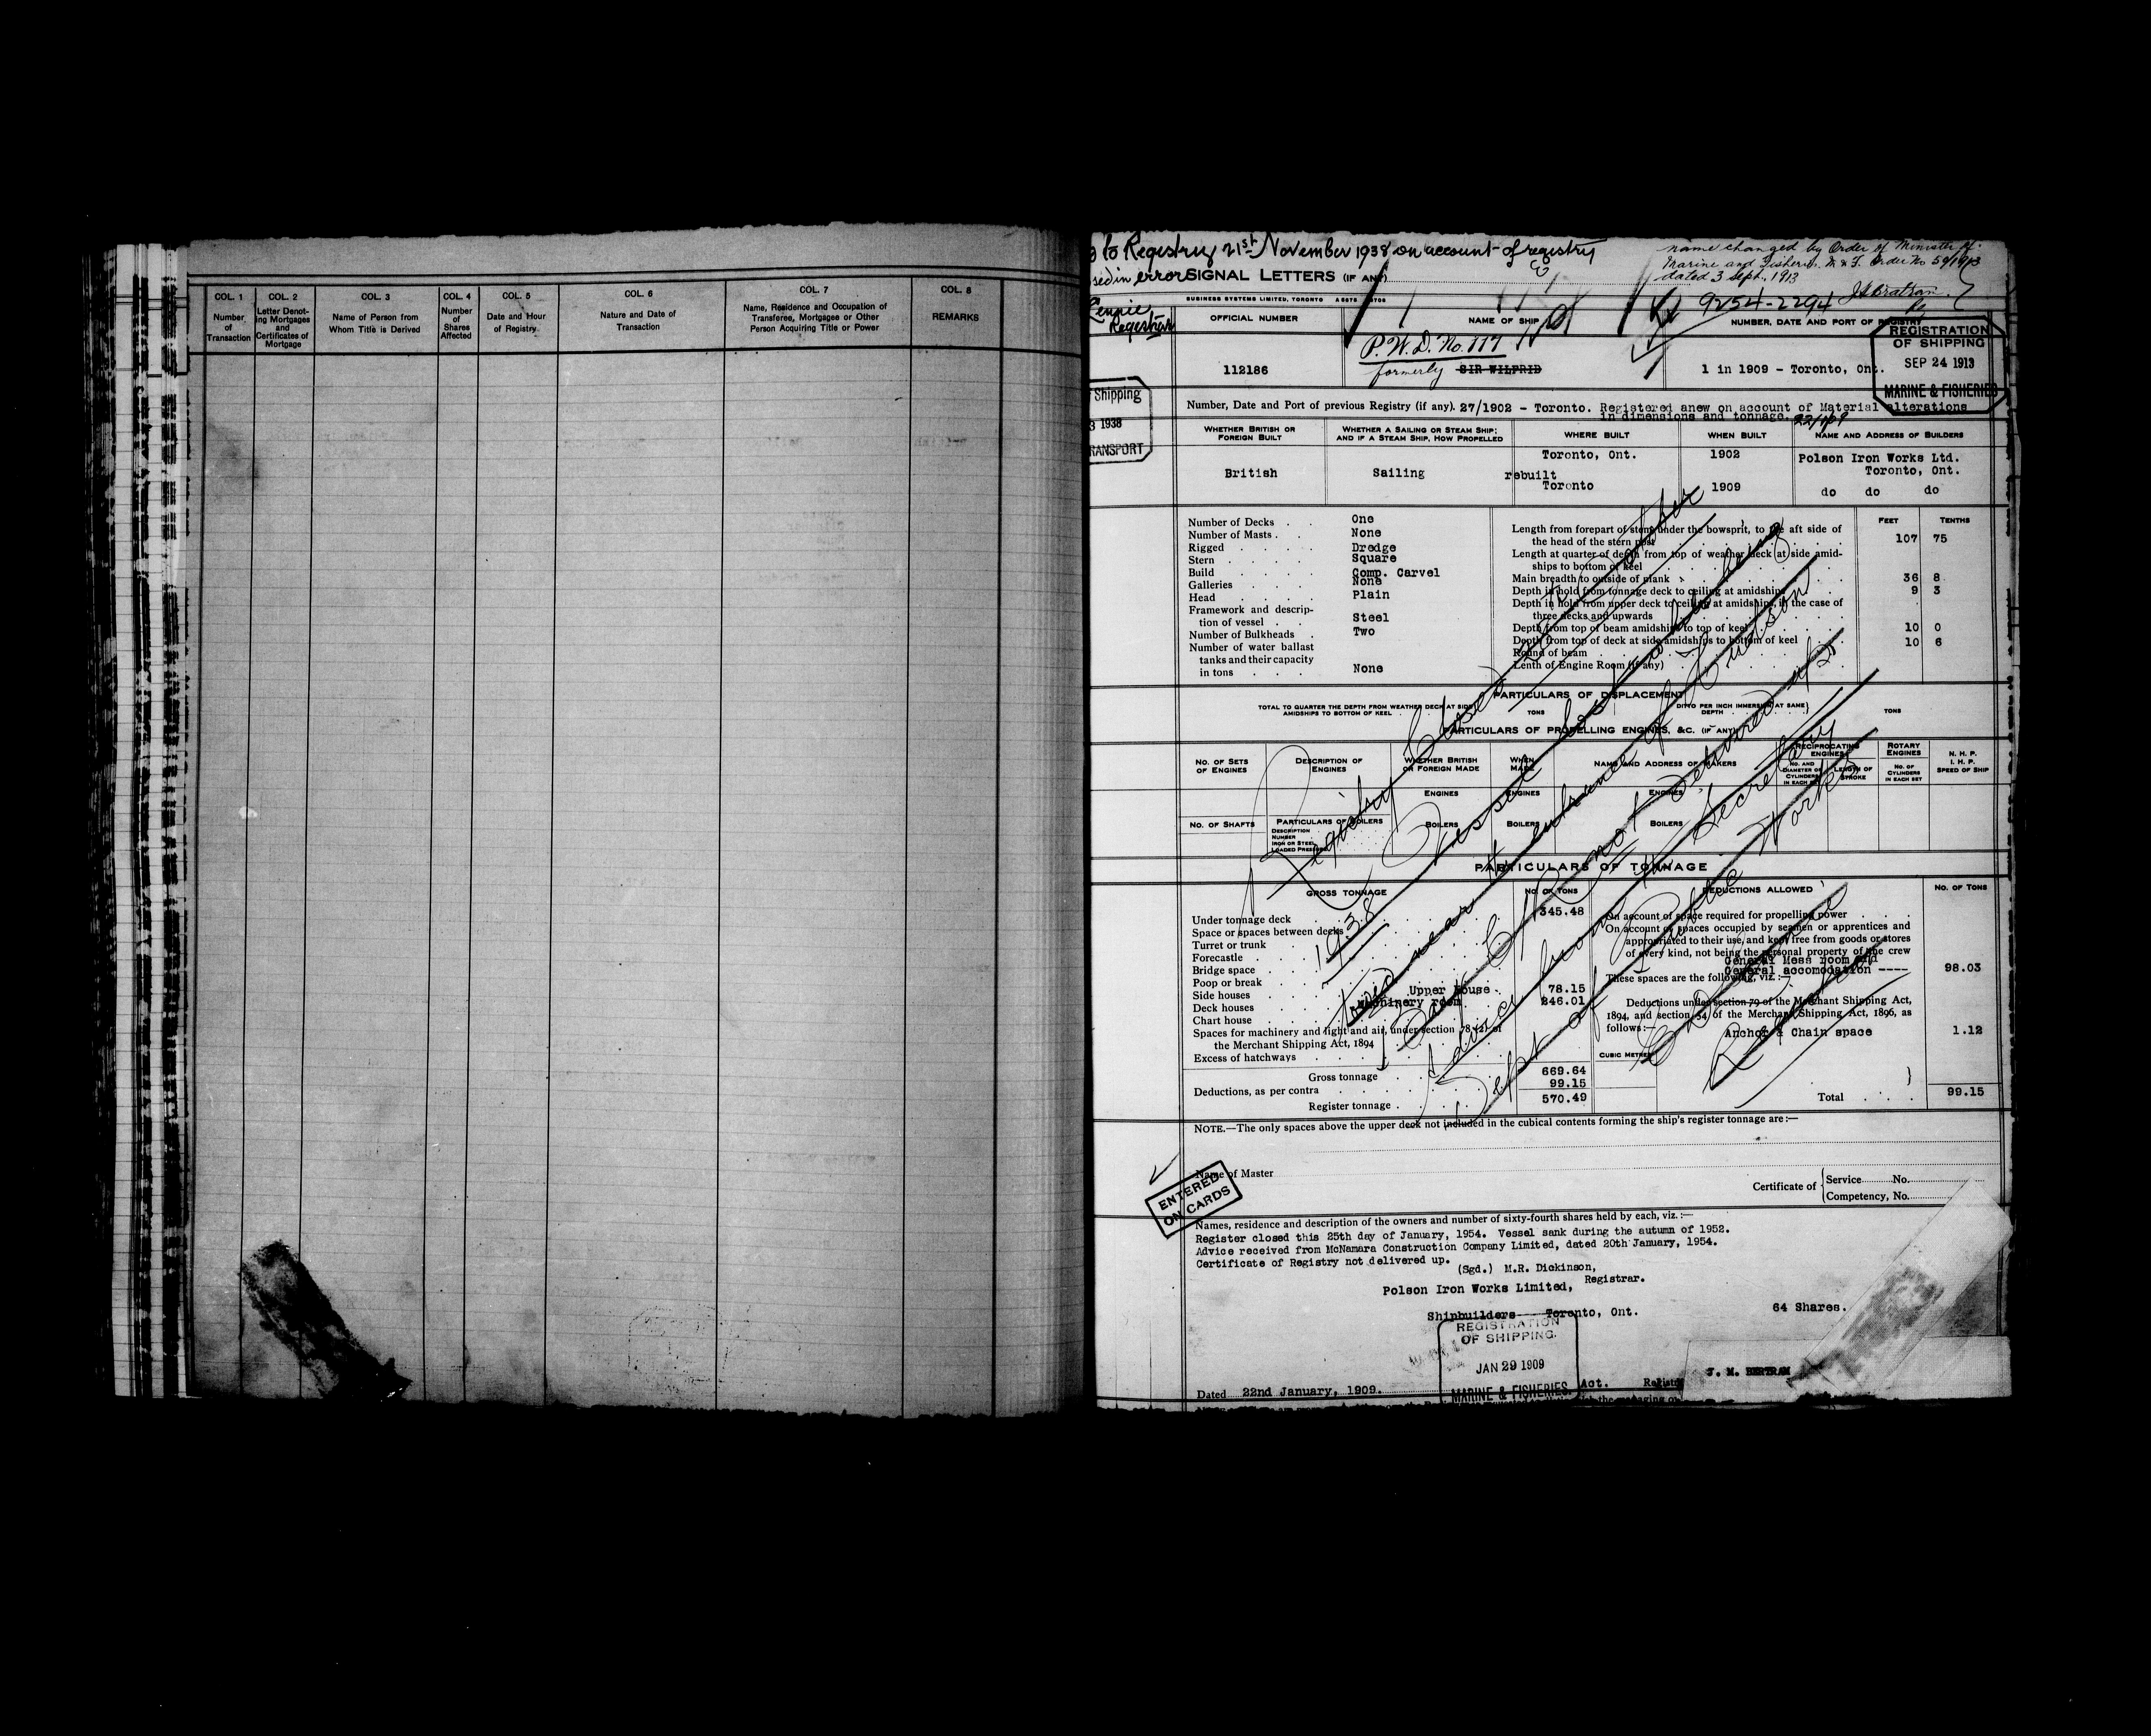 COL. 1
Number
of
Transaction
COL. 2
Letter Denot-
ing Mortgages
and
Certificates of
Mortgage
COL. 3
Name of Person from
Whom Title is Derived
COL. 4
Number
of
Shares
Affected
COL. 5
Date and Hour
of Registry
COL. 6
Nature and Date of
Transaction
COL. 7
Name, Residence and Occupation of
Transferee, Mortgagee or Other
Person Acquiring Title or Power
COL. 8
REMARKS
to Registry 21st November 1938 on account of registry
sed in error
Registrar
name changed by Order of Minister of
Marine and Fisheries
dated 3 Sept. 1913
9254-2294
SIGNAL LETTERS (IF ANY)
BUSINESS SYSTEMS LIMITED, TORONTO
OFFICIAL NUMBER
NAME OF SHIP
NUMBER, DATE AND PORT OF REGISTRY
REGISTRATION
OF SHIPPING
SEP 24 1913
MARINE & FISHERIES
112186
P.W.D. No. 117
formerly SIR WILFRID
1 in 1909 - Toronto, Ont.
Shipping
1938
RANSPORT
Number, Date and Port of previous Registry (if any). 27/1902 - Toronto. Registered anew on account of Material alterations
in dimensions and tonnage.
WHETHER BRITISH OR
FOREIGN BUILT
WHETHER A SAILING OR STEAM SHIP;
AND IF A STEAM SHIP, HOW PROPELLED
WHERE BUILT
WHEN BUILT
NAME AND ADDRESS OF BUILDERS
British
Sailing
Toronto, Ont.
1902
Polson Iron Works Ltd.
Toronto, Ont.
rebuilt
Toronto
1909
do do do
Number of Decks One
Number of Masts None
Rigged Dredge
Stern Square
Build Comp. Carvel
Galleries None
Head Plain
Framework and descrip-
tion of vessel Steel
Number of Bulkheads Two
Number of water ballast
tanks and their capacity
in tons None
FEET TENTHS
Length from forepart of stem under the bowsprit, to the aft side of
the head of the stern post 107 75
Length at quarter of depth from top of weather deck at side amid-
ships to bottom of keel
Main breadth to outside of plank 36 8
Depth in hold from tonnage deck to ceiling at amidships 9 3
Depth in hold from upper deck to ceiling at amidships, in the case of
three decks and upwards
Depth from top of beam amidships to top of keel 10 0
Depth from top of deck at side amidships to bottom of keel 10 6
Round of beam
Lenth of Engine Room (if any)
PARTICULARS OF DISPLACEMENT
TOTAL TO QUARTER THE DEPTH FROM WEATHER DECK AT SIDE
AMIDSHIPS TO BOTTOM OF KEEL
TONS
DITTO PER INCH IMMERSION AT SAME
DEPTH
TONS
PARTICULARS OF PROPELLING ENGINES, &C. (IF ANY)
NO. OF SETS
OF ENGINES
DESCRIPTION OF
ENGINES
WHETHER BRITISH
OR FOREIGN MADE
WHEN
MADE
NAME AND ADDRESS OF MAKERS
RECIPROCATING
ENGINES
NO. AND
DIAMETER OF
CYLINDERS
IN EACH SET
LENGTH OF
STROKE
ROTARY
ENGINES
NO. OF
CYLINDERS
IN EACH SET
N. H. P.
I. H. P.
SPEED OF SHIP
ENGINES
ENGINES
ENGINES
NO. OF SHAFTS
PARTICULARS OF BOILERS
DESCRIPTION
NUMBER
IRON OR STEEL
LOADED PRESSURE
BOILERS
BOILERS
BOILERS
PARTICULARS OF TONNAGE
GROSS TONNAGE
NO. OF TONS
DEDUCTIONS ALLOWED
NO. OF TONS
Under tonnage deck 345.48
Space or spaces between decks
Turret or trunk
Forecastle
Bridge space
Poop or break
Side houses Upper House 78.15
Deck houses Machinery room 246.01
Chart house
Spaces for machinery and light and air, under section 78 (2) of
the Merchant Shipping Act, 1894
Excess of hatchways
Gross tonnage 669.64
Deductions, as per contra 99.15
Register tonnage 570.49
On account of space required for propelling power
On account of spaces occupied by seamen or apprentices and
appropriated to their use, and kept free from goods or stores
of every kind, not being the personal property of the crew
General Mess room and
General accomodation ---- 98.03
These spaces are the following, viz.:—
Deductions under section 79 of the Merchant Shipping Act,
1894, and section 54 of the Merchant Shipping Act, 1896, as
follows:—
Anchor & Chain space 1.12
CUBIC METRES
Total 99.15
Registry Closed
1938
Vessel
near the entrance of
C of R not delivered up
Advice from Secretary
Dept of Public Works
Registrar
NOTE.—The only spaces above the upper deck not included in the cubical contents forming the ship's register tonnage are:—
Name of Master
ENTERED
ON CARDS
Certificate of
Service No.
Competency, No.
Names, residence and description of the owners and number of sixty-fourth shares held by each, viz.:—
Register closed this 25th day of January, 1954. Vessel sank during the autumn of 1952.
Advice received from McNamara Construction Company Limited, dated 20th January, 1954.
Certificate of Registry not delivered up.
(Sgd.) M.R. Dickinson,
Registrar.
Polson Iron Works Limited,
Shipbuilders---Toronto, Ont.
64 Shares.
REGISTRATION
OF SHIPPING.
JAN 29 1909
MARINE & FISHERIES.
Dated 22nd January, 1909.
Act.
J. M. BERTRAM